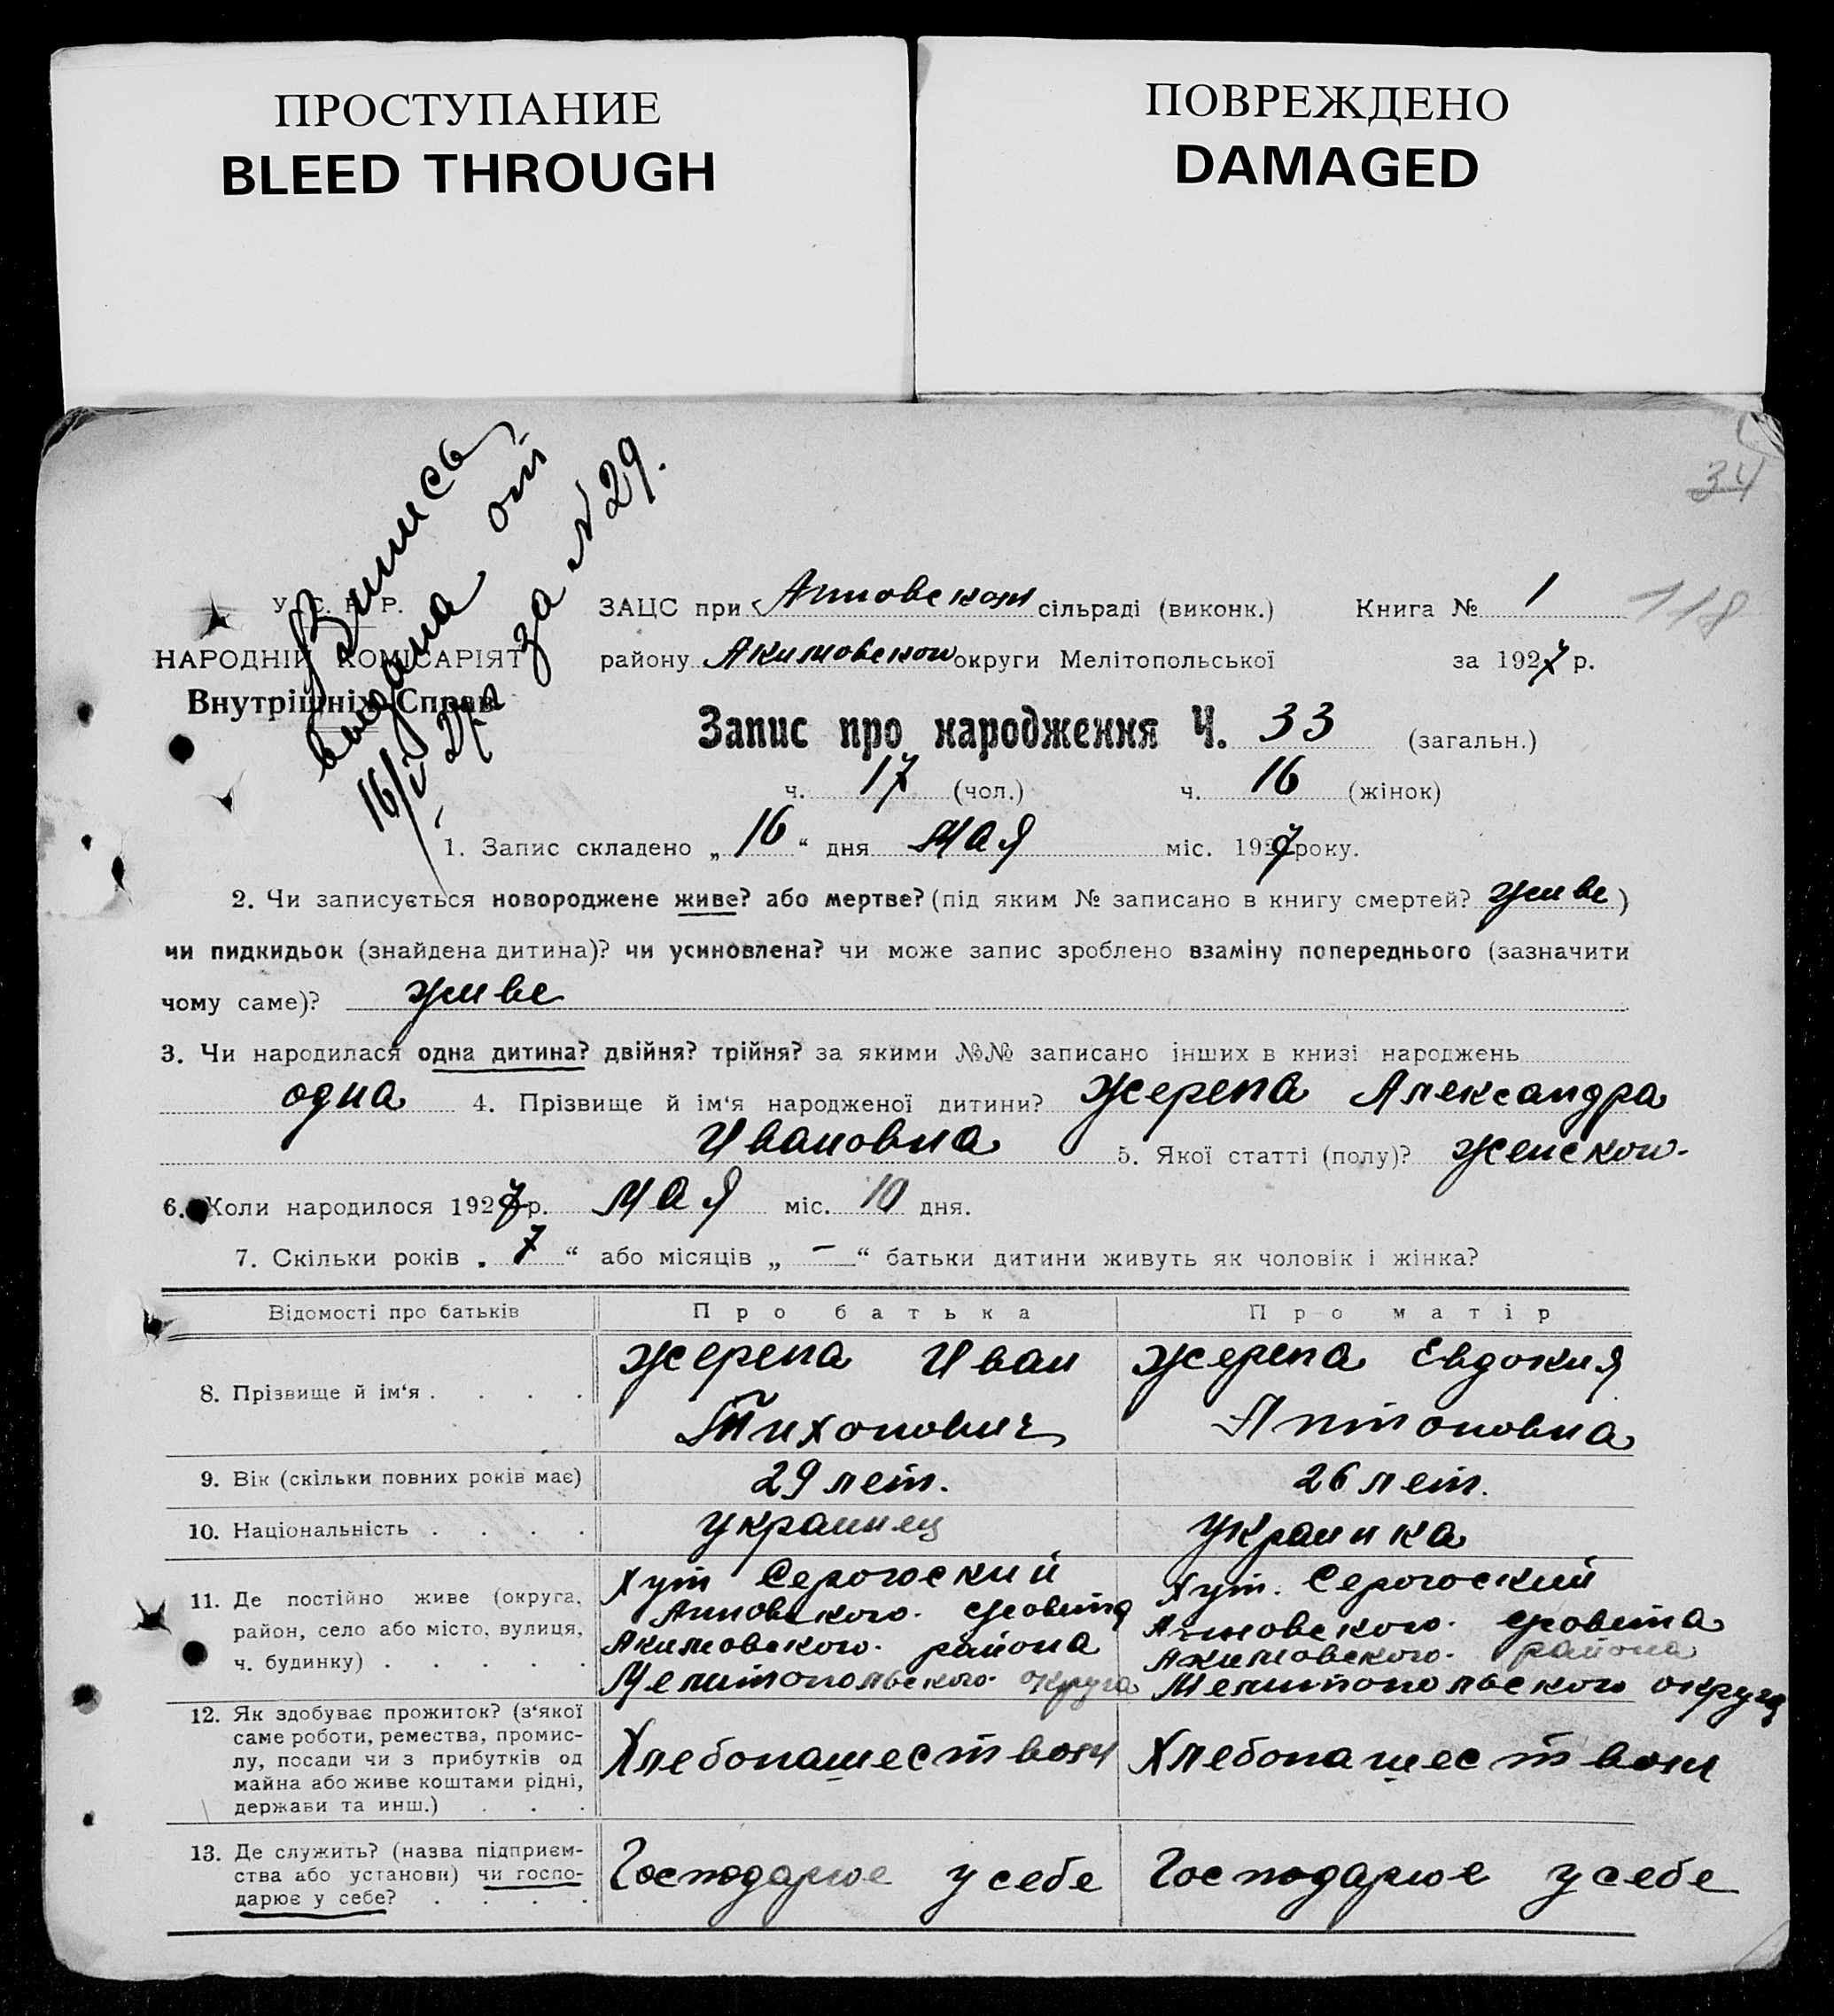 ПРОСТУПАНИЕ
BLEED THROUGH
ПОВРЕЖДЕНО
DAMAGED
34
118
Випись
выдана от
16/V 27 г за №29.
У. С. Р. Р.
НАРОДНІЙ КОМІСАРІЯТ
Внутрішніх Справ
ЗАЦС при Анновской сільраді (виконк.) Книга № 1
району Акимовской округи Мелітопольської за 1927 р.
Запис про народження Ч. 33 (загальн.)
ч. 17 (чол.) ч. 16 (жінок)
1. Запис складено „16“ дня мая міс. 1927 року.
2. Чи записується новороджене живе? або мертве? (під яким № записано в книгу смертей? живе)
чи пидкидьок (знайдена дитина)? чи усиновлена? чи може запис зроблено взаміну попереднього (зазначити
чому саме)? живе
3. Чи народилася одна дитина? двійня? трійня? за якими №№ записано інших в книзі народжень
одна 4. Прізвище й ім‘я народженої дитини? Жерепа Александра
Ивановна 5. Якої статті (полу)? женской.
6. Коли народилося 1927 р. мая міс. 10 дня.
7. Скільки років „7“ або місяців „—“ батьки дитини живуть як чоловік і жінка?
Відомості про батьків Про батька Про матір
8. Прізвище й ім‘я . . . . Жерепа Иван Жерепа Евдокия
Тихонович Антоновна
9. Вік (скільки повних років має) 29 лет. 26 лет.
10. Національність . . . . украинец украинка
11. Де постійно живе (округа, район, село або місто, вулиця, ч. будинку) . . . . .
Хут Серогоский
Анновского с/совета
Акимовского района
Мелитопольского округа
Хут. Серогоский
Анновского с/совета
Акимовского района
Мелитопольского округа
12. Як здобуває прожиток? (з‘якої
саме роботи, ремества, промис-
лу, посади чи з прибутків од
майна або живе коштами рідні,
держави та инш.) . . .
Хлебопашеством Хлебопашеством
13. Де служить? (назва підприєм-
ства або установи) чи госпо-
дарює у себе? . . . .
Господарює у себе Господарює у себе